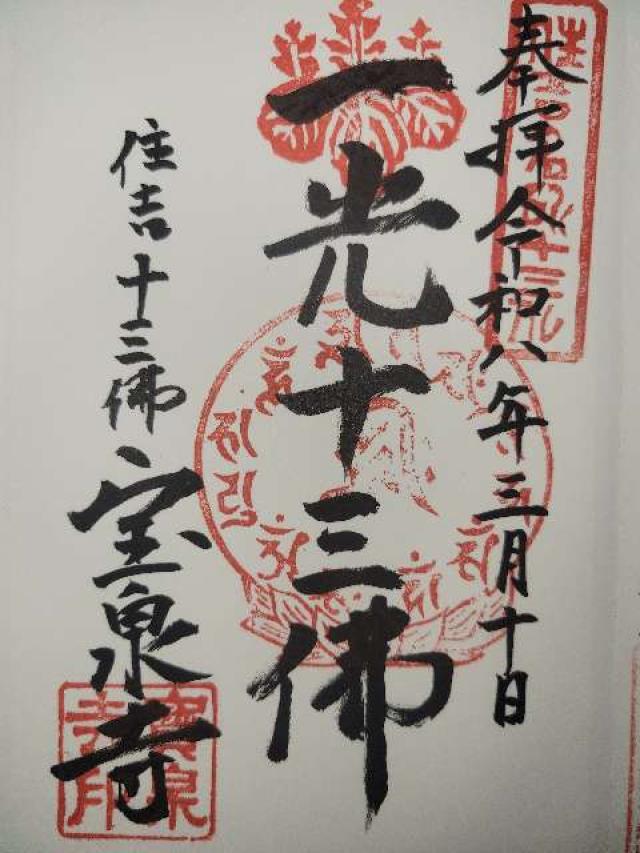 奉拝令和八年三月十日
一光十三佛
住吉十三佛
宝泉寺
寳泉
寺印